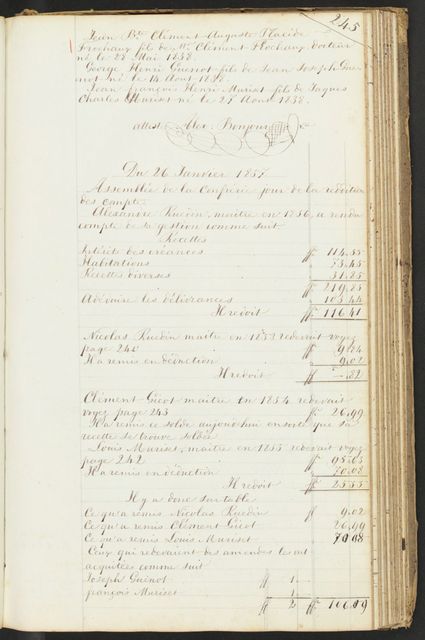 245
Jean Bte Clément Auguste Placide
Frochaux fils de Mr. Clément Frochaux
né le 28 Mai 1838.
George Henri Guenot fils de Jean Joseph Gue-
not né le 14 Aout 1838.
Jean françois Henri Muriset fils de Jaques
Charles Muriset né le 29 1838.
atteste Alex. Bonjour
Du 26 Janvier 1857
Assemblée de la Confrérie pour de la reddition
des compte.
Alexandre Ruedin, maitre en 1856, a rendu
compte de sa gestion comme suit
Recettes
Intérêts des créances ff. 114,55
Habitations 73.45
Recettes diverses 31.85
ff. 219.85
A déduire les délivrances 103.44
Il redoit ff. 116.41
Nicolas Ruedin maitre en 1853 redevait voyez
page 242 ff. 9.84
Il a remis en déduction 9.02
Il redoit ff. —.82
Clément Gicot maitre en 1854 redevait
voyez page 243 ff. 26.99
Il a remis ce solde aujourd'hui en sorte que sa
recette se trouve soldée
Louis Muriset, maitre en 1855 redevait voyez
page 242 ff. 95.63
Il a remis en déduction 70.08
Il redoit ff. 25.55
Il y a donc sur table
Ce qu'a remis Nicolas Ruedin ff 9.02
Ce qu'a remis Clément Gicot 26.99
Ce qu'a remis Louis Muriset 70.08
Ceux qui redevaient des amendes les ont
acquitées comme suit
Joseph Guenot ff 1—
françois Muriset 1—
ff 2 ff. 106.09